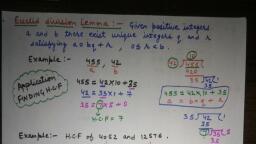 Euclid division Lemma :- Given positive integers
a and b there exist unique integers q and r
satisfying a = bq + r, 0 ≤ r < b.
Example:- 455, 42
a b
42 ) 455 ( 10
420
35
Application
FINDING H.C.F
455 = 42×10 + 35
42 = 35×1 + 7
35 = 7×5 + 0
H.C.F = 7
35 ) 42 ( 1
35
7
455 = 42×10 + 35
a = b×q + r
Example:- H.C.F of 4052 and 12576.